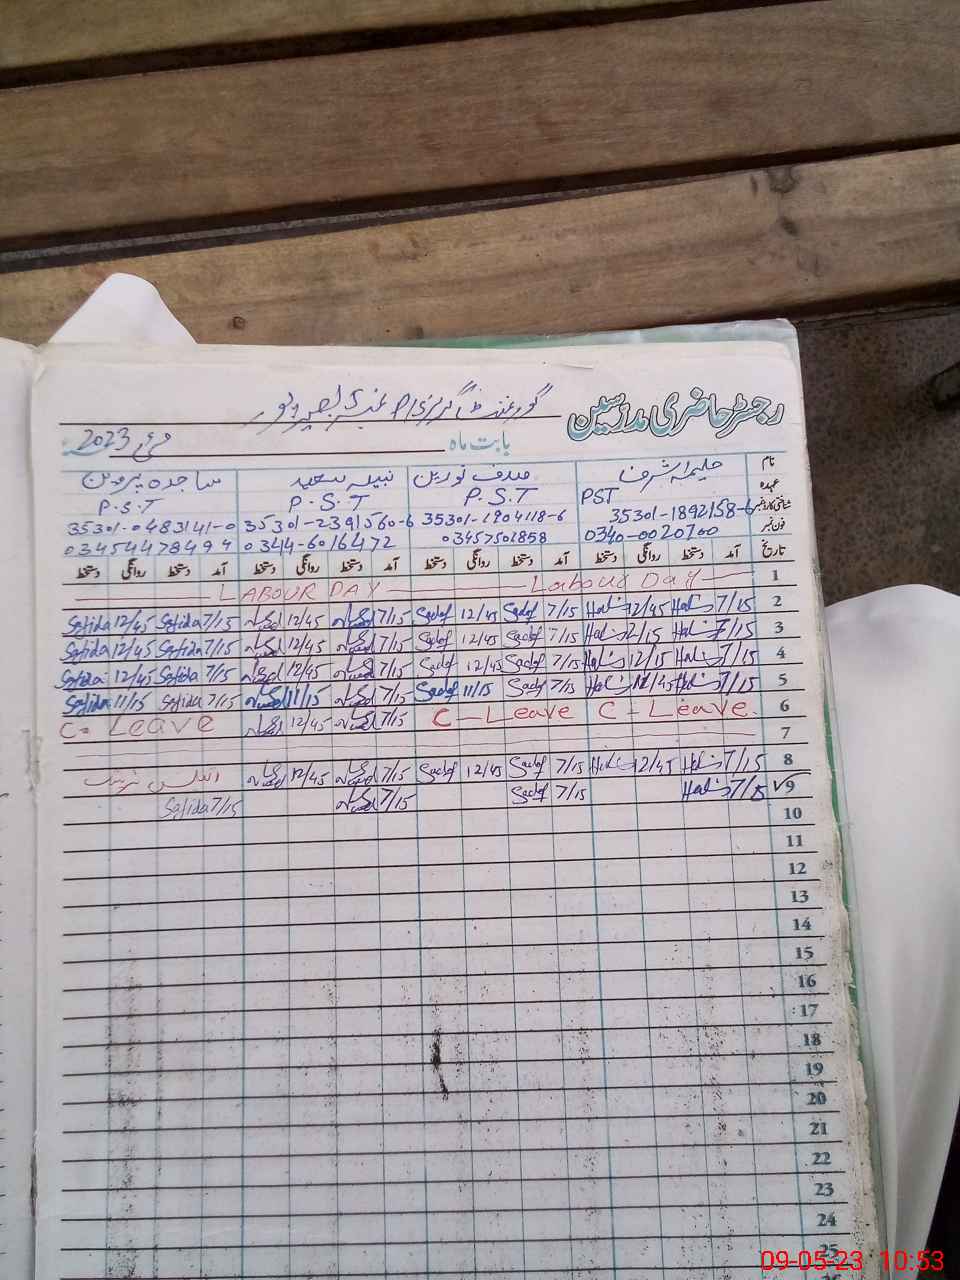 رجسٹر حاضری مدرسین
گورنمنٹ گرلز
بابت ماہ مئی 2023
نام حلیمہ اشرف صدف نورین نبیلہ سعید ساجدہ پروین
عہدہ PST P.S.T P.S.T P.S.T
شناختی کارڈ نمبر 35301-1892158-6 35301-1904118-6 35301-2391560-6 35301-0483141-0
فون نمبر 0340-0020700 03457501858 0344-6016472 03454478494
تاریخ آمد دستخط روانگی دستخط آمد دستخط روانگی دستخط آمد دستخط روانگی دستخط آمد دستخط روانگی دستخط
LABOUR DAY Labour Day 1
Sajida 12/45 Sajida 7/15 12/45 7/15 Sadaf 12/45 Sadaf 7/15 12/45 7/15 2
Sajida 12/45 Sajida 7/15 12/45 7/15 Sadaf 12/45 Sadaf 7/15 12/15 7/15 3
Sajida 12/45 Sajida 7/15 12/45 7/15 Sadaf 12/45 Sadaf 7/15 12/15 7/15 4
Sajida 11/15 Sajida 7/15 11/15 7/15 Sadaf 11/15 Sadaf 7/15 7/15 5
C- Leave 12/45 7/15 C-Leave C-Leave 6
7
12/45 7/15 Sadaf 12/45 Sadaf 7/15 12/45 7/15 8
Sajida 7/15 7/15 Sadaf 7/15 7/15 9
10
11
12
13
14
15
16
17
18
19
20
21
22
23
24
25
09-05-23 10:53